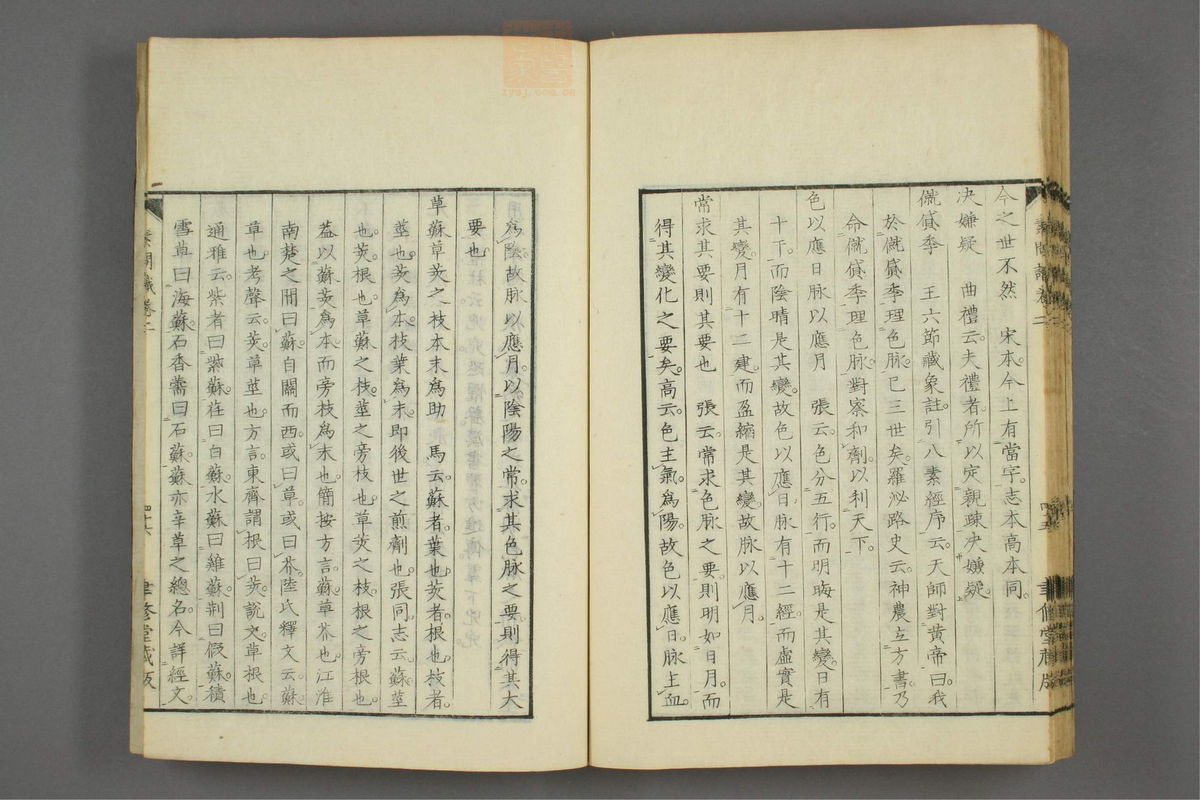 今之世不然　宋本今上有當字志本高本同。
决嫌疑　曲禮云夫禮者所以定親疎决嫌疑。
僦貸季　王六節藏象註引八素經序云天師對黃帝曰我
於僦貸季理色脉已三世矣。羅泌路史云神農立方書。乃
命僦貸季理色脉。對察和劑。以利天下。
色以應日脉以應月　張云。色分五行。而明晦是其變。日有
十干。而陰晴是其變。故色以應日。脉有十二經。而虛實是
其變。月有十二建。而盈縮是其變。故脉以應月。
常求其要則其要也　張云。常求色脉之要。則明如日月。而
得其變化之要矣。高云。色主氣。爲陽。故色以應日。脉主血。
爲陰。故脉以應月。以陰陽之常。求其色脉之要。則得其大
要也。
草蘇草荄之枝本末爲助　馬云。蘇者。葉也。荄者。根也。枝者。
莖也。荄爲本。枝葉爲末。即後世之煎劑也。張同。志云。蘇莖
也。荄根也。草蘇之枝。莖之旁枝也。草荄之枝。根之旁根也。
葢以蘇荄爲本。而旁枝爲末也。簡按方言。蘇草芥也。江淮
南楚之間曰蘇。自關而西。或曰草。或曰芥。陸氏釋文云。蘇
草也。考聲云。荄草莖也。方言。東齊謂根曰荄。說文。草根也。
通雅云。紫者曰紫蘇。荏曰白蘇。水蘇曰雞蘇。荆曰假蘇。積
雪草曰海蘇。石香薷曰石蘇。蘇亦辛草之總名。今詳經文。
素問識卷二
四十六
聿修堂藏版